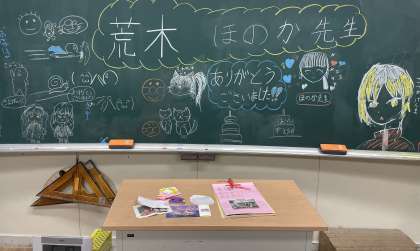 荒木 ほのか 先生
ありがとう
ございました!!
ほのか先生